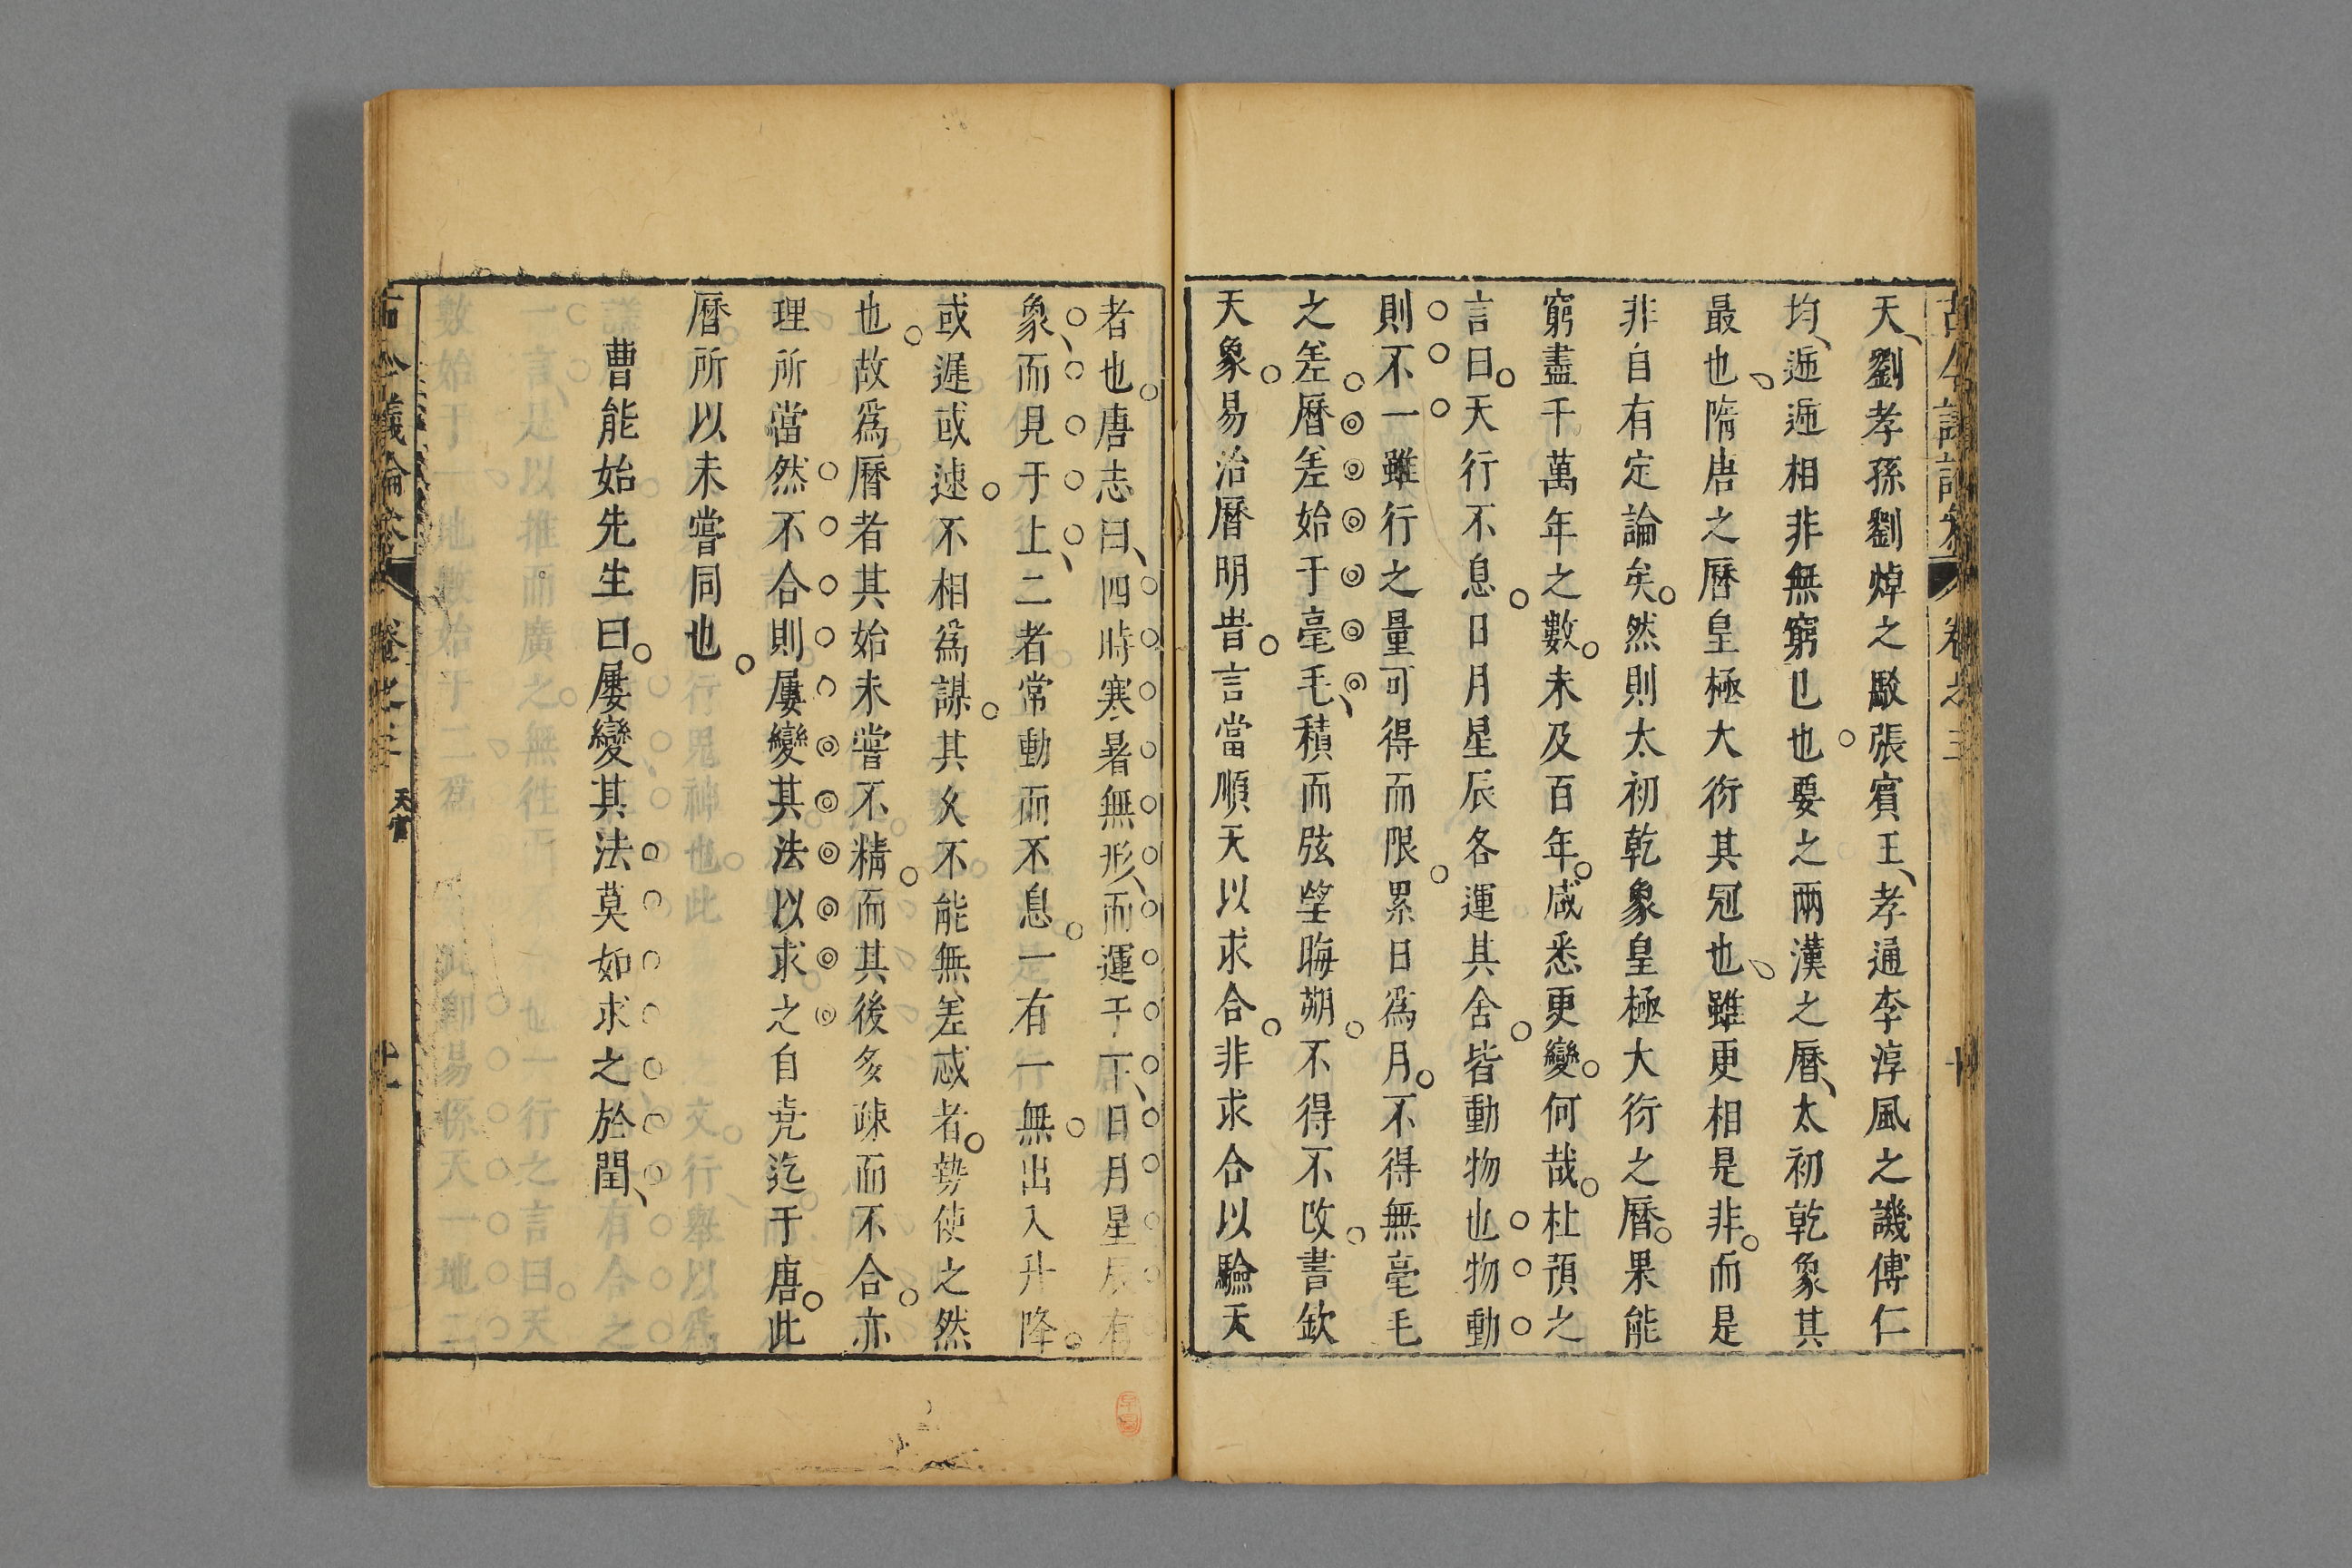 古今議論參 卷之三 十
天、劉孝孫劉焯之駁張賔王、孝通李淳風之譏傅仁
均、遞遞相非無窮巳也。要之兩漢之曆、太初乾象其
最也。隋唐之曆皇極大衍其冠也。雖更相是非。而是
非自有定論矣。然則太初乾象皇極大衍之曆。果能
窮盡千萬年之數。未及百年。咸悉更變。何哉。杜預之
言曰。天行不息。日月星辰各運其舍。皆動物也。物動
則不一雖行之量可得而限。累日爲月。不得無毫毛
之差曆差始于毫毛、積而弦望晦朔。不得不改。書欽
天象。易治曆明旹。言當順天以求合。非求合以驗天
者也。唐志曰、四時寒暑無形、而運于下、日月星辰有
象、而見于上、二者常動而不息。一有一無。出入升降。
或遲或速。不相爲謀。其久不能無差忒者。勢使之然
也。故爲曆者其始未嘗不精。而其後多疎而不合。亦
理所當然不合則屢變其法以求之自堯迄于唐。此
曆所以未嘗同也。
曹能始先生曰。屡變其法莫如求之於閏、
古今議論參 卷之三 天官 十一